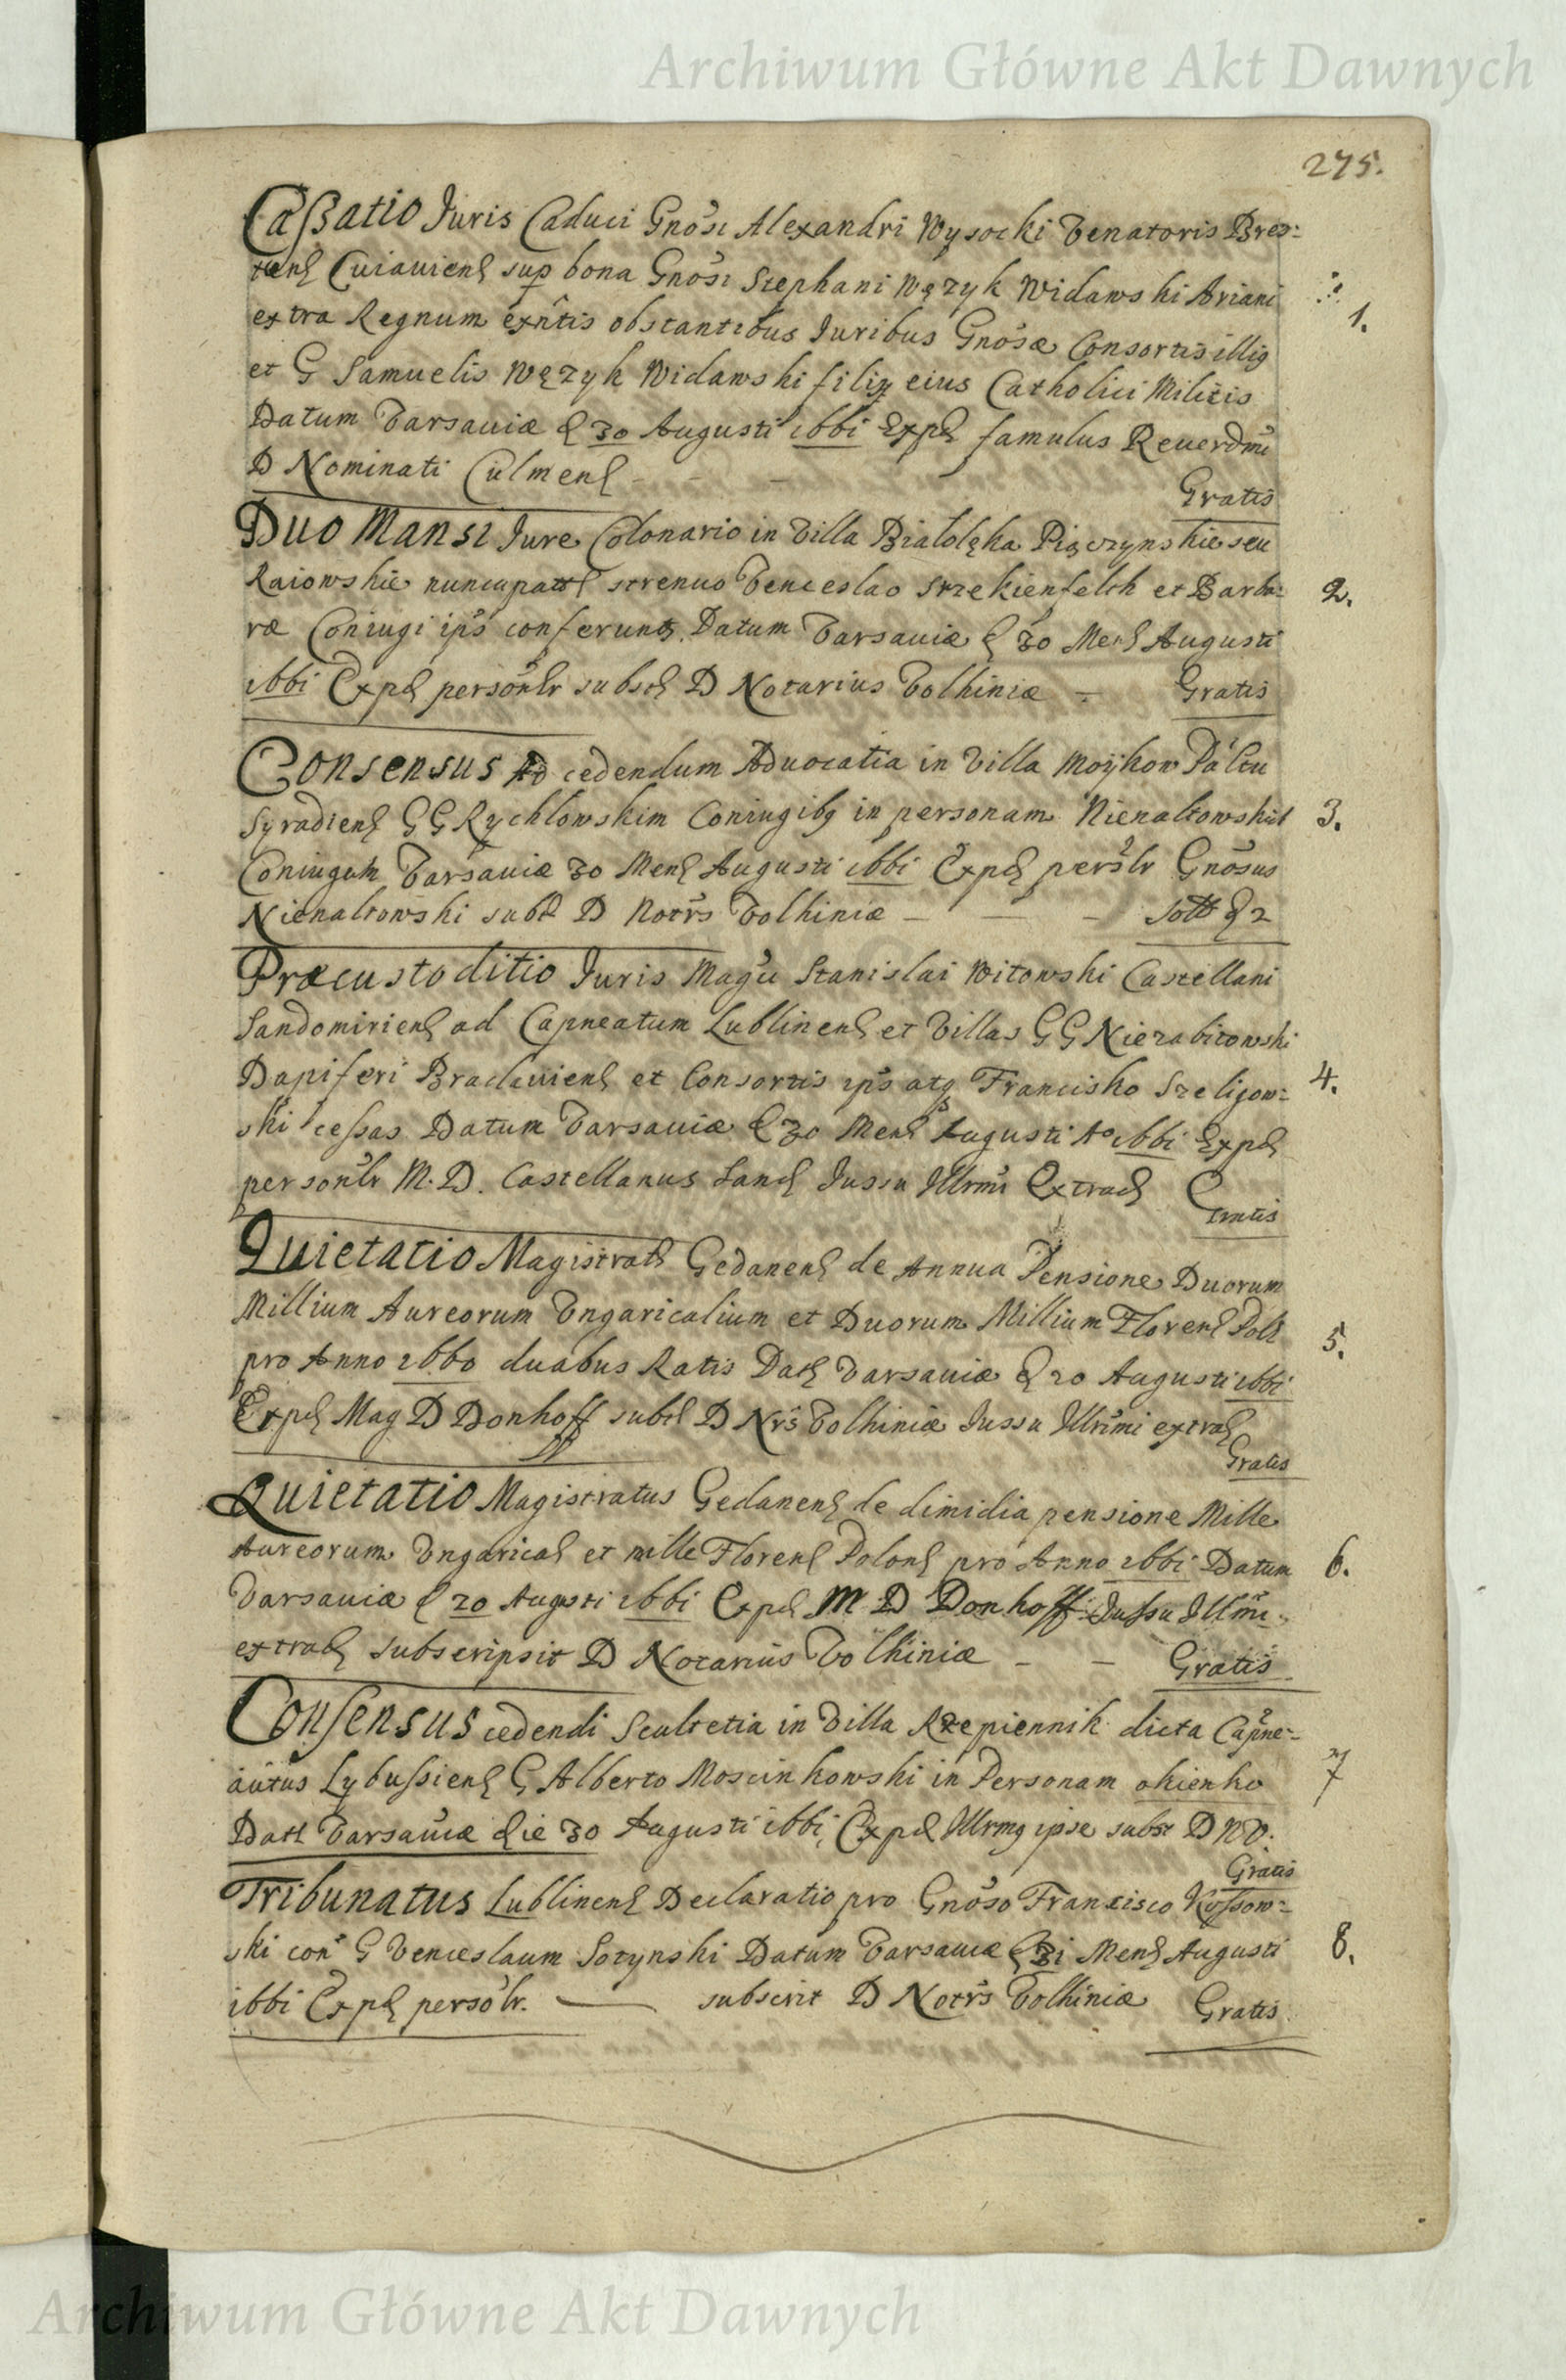 Archiwum Główne Akt Dawnych
275.
Caßatio Juris Caduci Gnosi Alexandri Wysocki Venatoris Bres:
tens Cuiauiens sup bona Gnosi Stephani Wężyk Widawski Ariani
extra Regnum exntis obstantibus Juribus Gnosæ Consortis illig 1.
et G Samuelis Wężyk Widawski filij eius Catholici Militis
Datum Varsauiæ d 30 Augusti 1661 Expd famulus Reuerdmi
D Nominati Culmens - - - Gratis
Duo Mansi Jure Colonario in Villa Białolęka Piączynskie seu
Raiowskie nuncupat strenuo Venceslao Strzekienfelth et Barba: 2.
ræ Coniugi ips conferunt. Datum Varsauiæ d 30 Mens Augusti
1661 Expd personlr subsc D Notarius Volhiniæ - Gratis
Consensus Ad cedendum Aduocatia in Villa Moÿkow Paltu
Syradiens GG Rychlowskim Coniugibq in personam Nienaltowskich 3.
Coniugum Varsauiæ 30 Mens Augusti 1661 Expd perslr Gnosus
Nienaltowski subs D Notrs Volhiniæ - - -
Præcustoditio Juris Magci Stanislai Witowski Castellani
Sandomiriens ad Capneatum Lublinens et Villas GG Niezabitowski
Dapiferi Braclauiens et Consortis ips atq Francisko Szeligow: 4.
ski cessas Datum Varsauiæ d 30 Mens Augusti Ao 1661 Expd
personlr M. D. Castellanus Sand Jussu Illrmi Extrad Gratis
Quietatio Magistrats Gedanens de Annua Pensione Duorum
Millium Aureorum Vngaricalium et Duorum Millium Florens Pols 5.
pro Anno 1660 duabus Ratis Dats Varsauiæ d 20 Augusti 1661
Expd Mag D Donhoff subs D Nrs Volhiniæ Jussu Illrimi extrad
Gratis
Quietatio Magistratus Gedanens de dimidia pensione Mille
Aureorum Vngarical et mille Florens Polons pro Anno 1661 Datum 6.
Varsauiæ d 20 Augsti 1661 Expd M D Donhoff Jussu Illmi.
extrad subscripsit D Notarius Volhiniæ - - Gratis
Consensus cedendi Scultetia in Villa Rzepiennik dicta Capne:
atus Lybussiens G Alberto Moscinkowski in Personam okienko 7
Datt Varsauiæ die 30 Augusti 1661, Expd Illrmg ipse subsc D NV.
Gratis
Tribunatus Lublinens Declaratio pro Gnoso Francisco Kossow:
ski con G Venceslaum Sotynski Datum Varsauiæ d 31 Mens Augusti 8.
1661 Expd persolr. — subscrit D Notrs Volhiniæ Gratis
Archiwum Główne Akt Dawnych